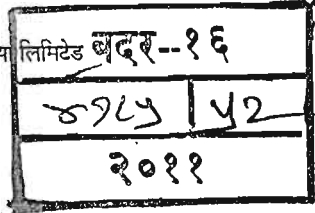 या लिमिटेड बदर--१६
४१८५ | ५२
२०११